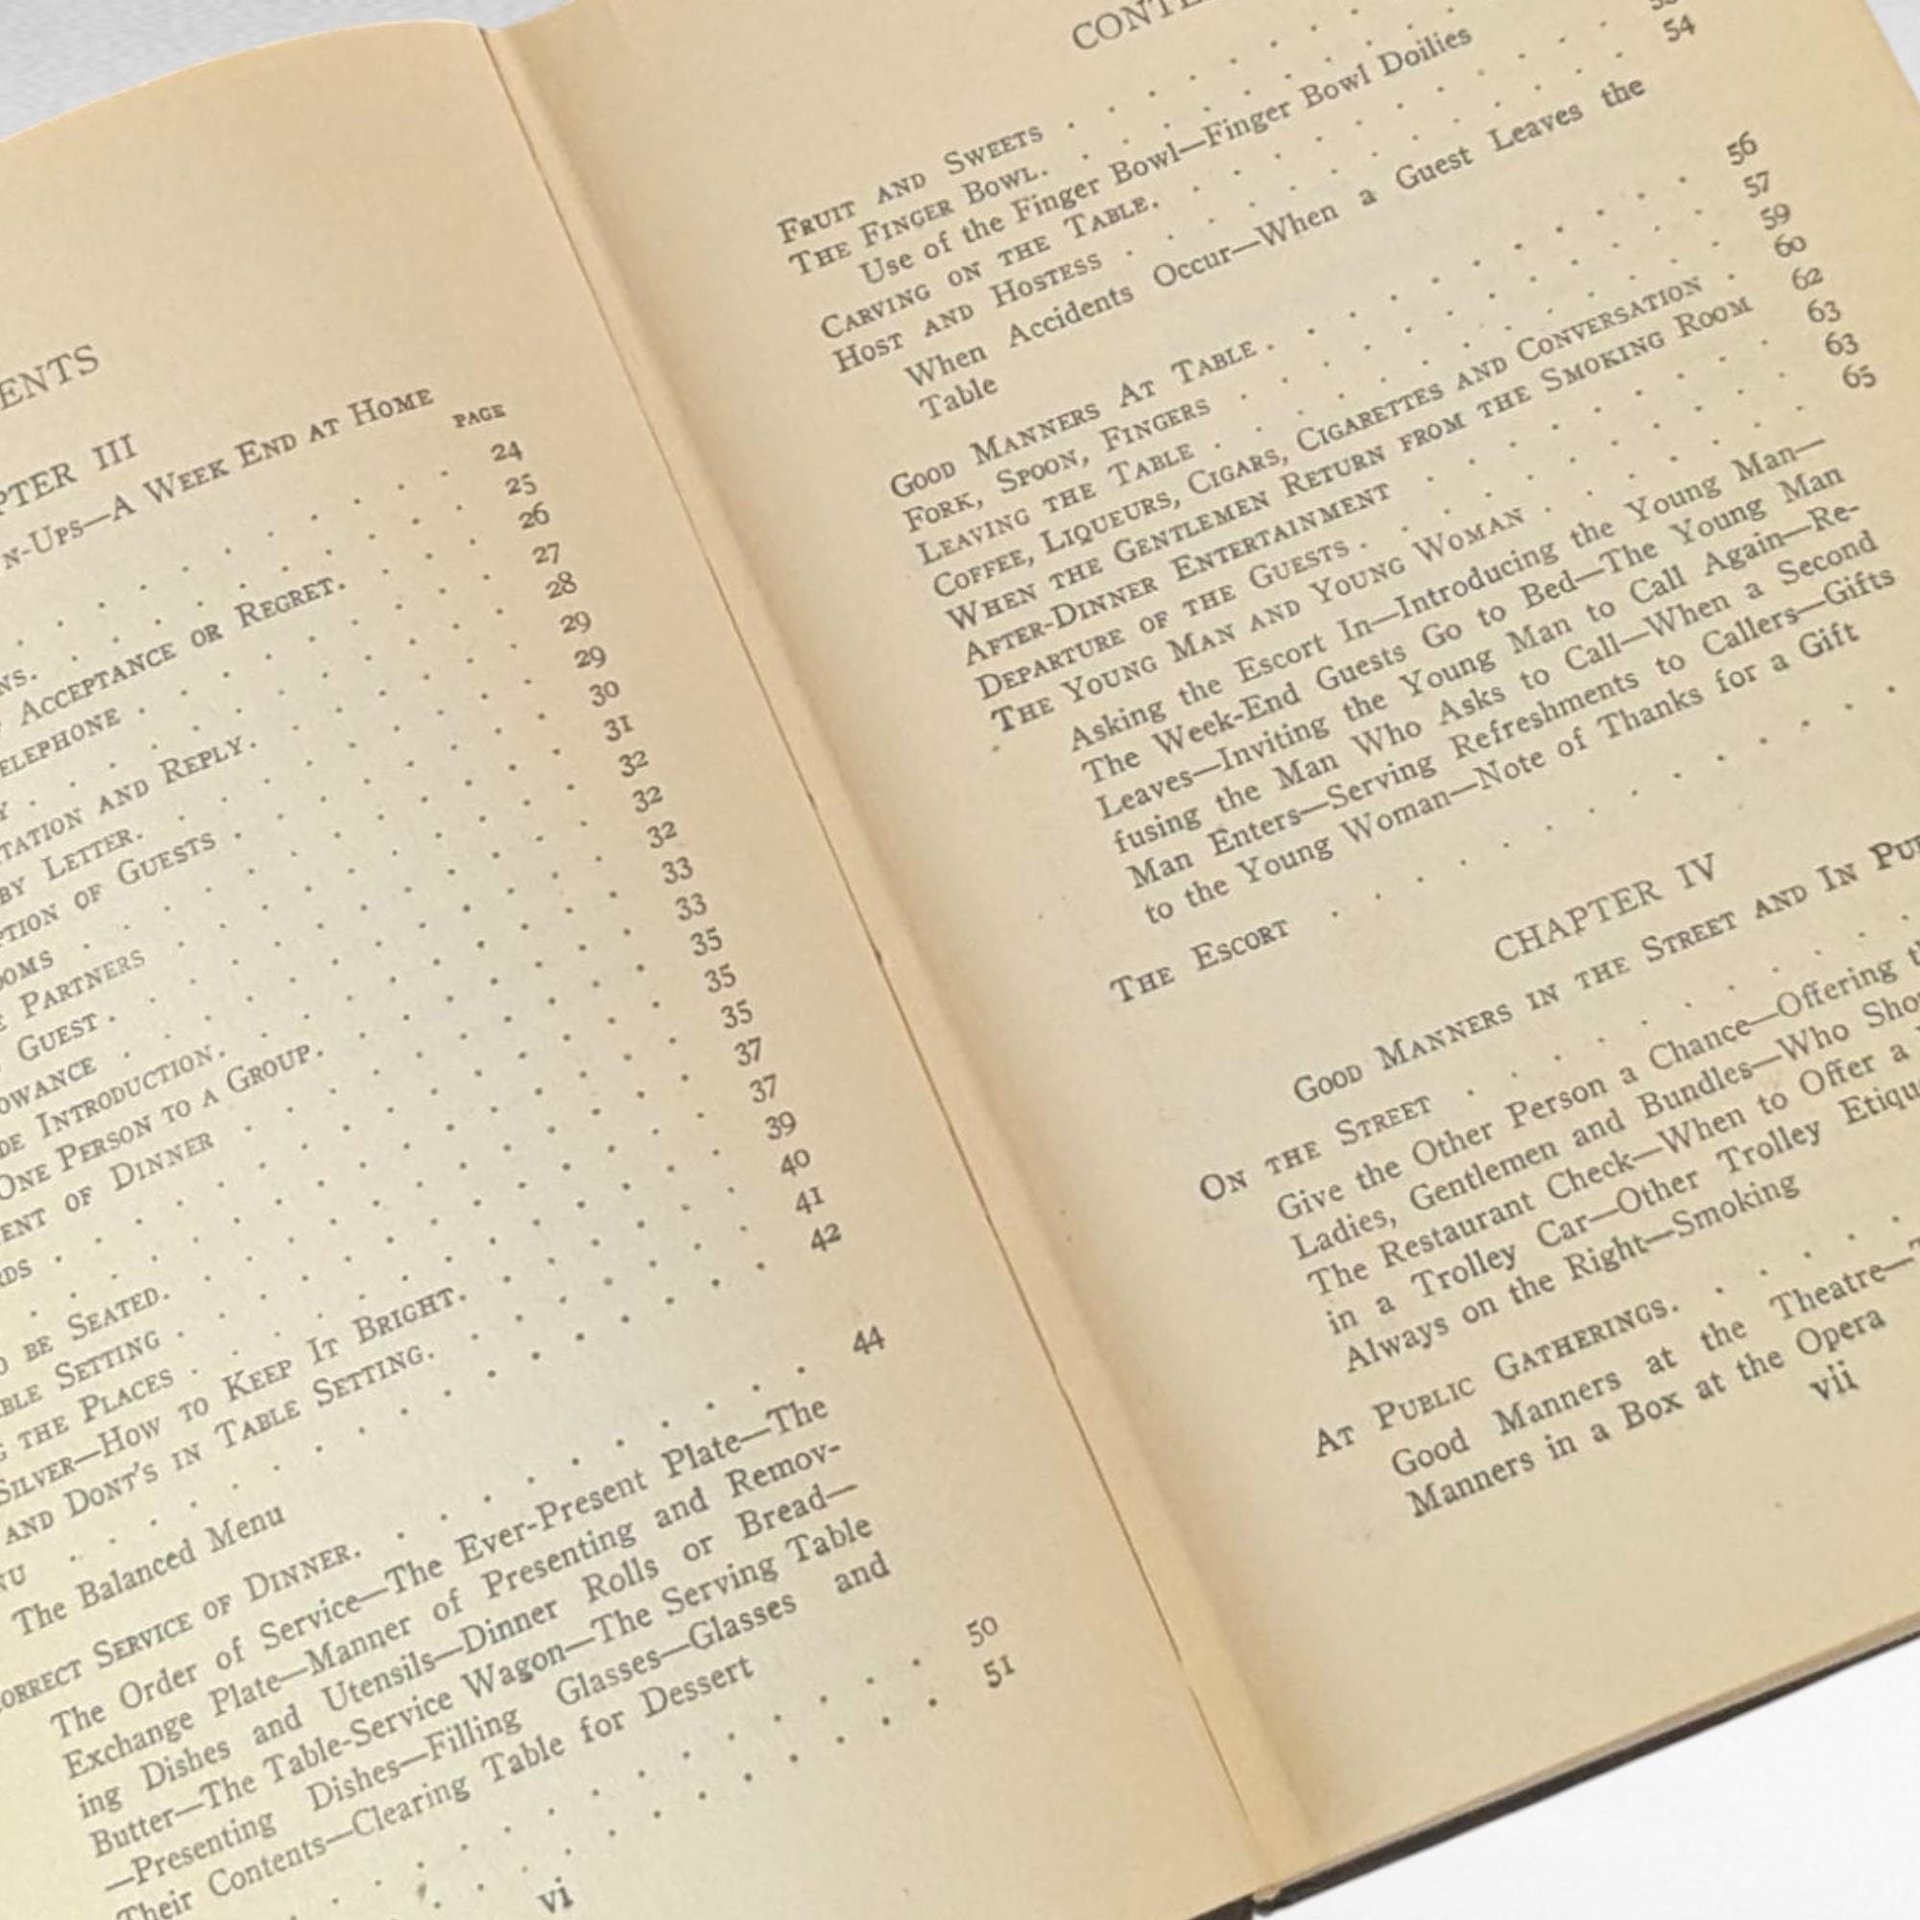 ENTS
PTER III
N-UPS—A WEEK END AT HOME
PAGE
24
25
NS. 26
ACCEPTANCE OR REGRET. 27
ELEPHONE 28
Y 29
TATION AND REPLY. 29
BY LETTER. 30
PTION OF GUESTS 31
OOMS 32
E PARTNERS 32
GUEST 32
OWANCE 33
DE INTRODUCTION. 33
ONE PERSON TO A GROUP. 35
ENT OF DINNER 35
RDS 35
37
O BE SEATED. 37
BLE SETTING 39
G THE PLACES 40
SILVER—HOW TO KEEP IT BRIGHT. 41
AND DONT'S IN TABLE SETTING. 42
NU
The Balanced Menu
ORRECT SERVICE OF DINNER. 44
The Order of Service—The Ever-Present Plate—The
Exchange Plate—Manner of Presenting and Remov-
ing Dishes and Utensils—Dinner Rolls or Bread—
Butter—The Table-Service Wagon—The Serving Table
—Presenting Dishes—Filling Glasses—Glasses and
Their Contents—Clearing Table for Dessert
50
51
vi
CONTE
FRUIT AND SWEETS
THE FINGER BOWL.
Use of the Finger Bowl—Finger Bowl Doilies
CARVING ON THE TABLE. 53
HOST AND HOSTESS 54
When Accidents Occur—When a Guest Leaves the
Table
GOOD MANNERS AT TABLE 56
FORK, SPOON, FINGERS 57
LEAVING THE TABLE 59
COFFEE, LIQUEURS, CIGARS, CIGARETTES AND CONVERSATION 60
WHEN THE GENTLEMEN RETURN FROM THE SMOKING ROOM 62
AFTER-DINNER ENTERTAINMENT 63
DEPARTURE OF THE GUESTS 63
THE YOUNG MAN AND YOUNG WOMAN 65
Asking the Escort In—Introducing the Young Man—
The Week-End Guests Go to Bed—The Young Man
Leaves—Inviting the Young Man to Call Again—Re-
fusing the Man Who Asks to Call—When a Second
Man Enters—Serving Refreshments to Callers—Gifts
to the Young Woman—Note of Thanks for a Gift
THE ESCORT
CHAPTER IV
GOOD MANNERS IN THE STREET AND IN PUB
ON THE STREET
Give the Other Person a Chance—Offering th
Ladies, Gentlemen and Bundles—Who Shou
The Restaurant Check—When to Offer a
in a Trolley Car—Other Trolley Etiqu
Always on the Right—Smoking
AT PUBLIC GATHERINGS.
Good Manners at the Theatre—T
Manners in a Box at the Opera
vii